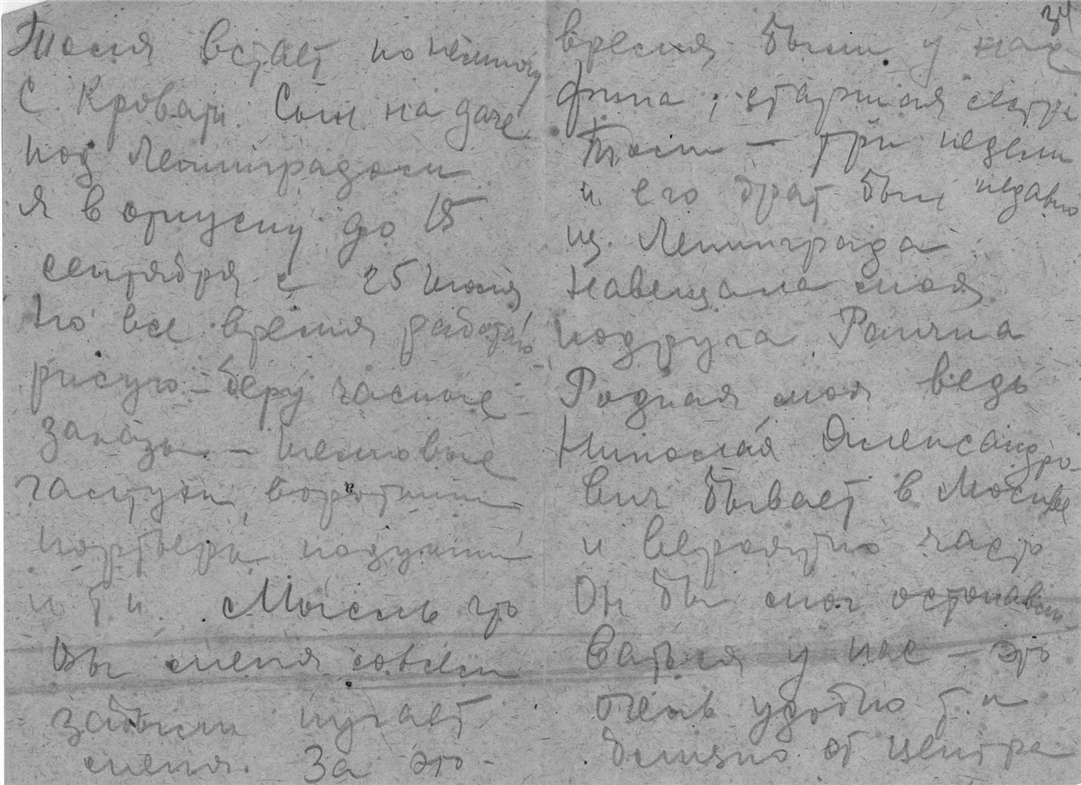 Тося встает понемногу
с кровати. Сын на даче
под Ленинградом
Я в отпуску до 15
сентября с 25 июля
Но все время работаю
рисую – беру частные
заказы – шелковые
галстуки, воротники
портьеры подушки
и т п. Мысль что
Вы меня совсем
забыли пугает
меня. За это –
34
время были у нас
старшая сестра
Тоси – три недели
и его брат был недавно
из Ленинграда
Навещала моя
подруга
Родная моя ведь
Николай Александро
вич бывает в Москве
и вероятно часто
Он бы мог останавли
ваться у нас – это
очень удобно т. к
близко от центра